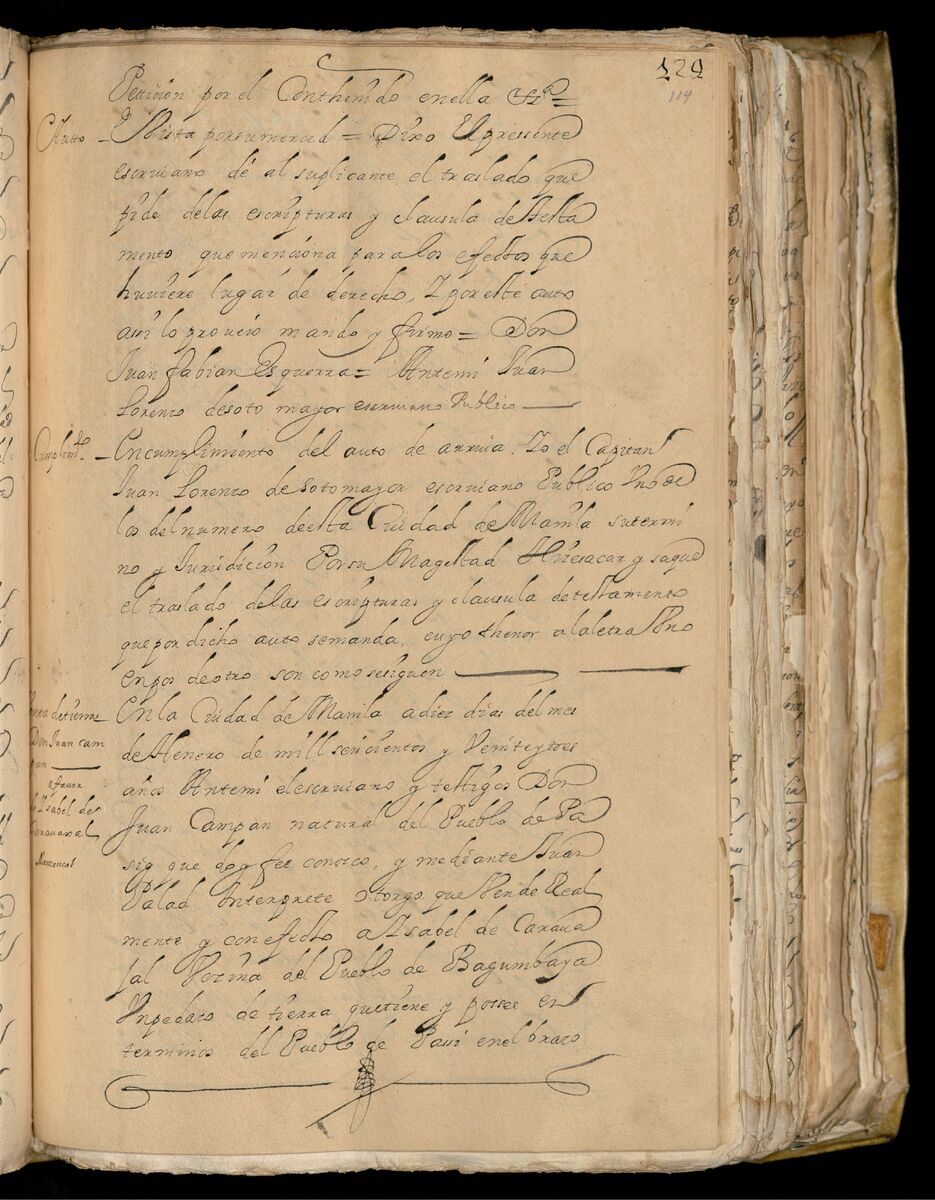 129
114
Peticion por el Conthenido en ella &ª =
Autto
Vista por su merced = Dixo El pressente
escriuano dé al suplicante el traslado que
pide de las escripturas y clausula de testa
mento que menciona para los efectos que
huuiere lugar de derecho, Y por este auto
assi lo proueió mando y firmo = Don
Juan fabian Esquerra = Antemi Juan
Lorenzo de soto mayor escriuano Publico
Cumplimto.
En cumplimiento del auto de arriua. Yo el Capitan
Juan Lorenzo de Sotomayor escriuano Publico Vno de
los del numero de esta Ciudad de Manila su termi
no y Jurisdicion Por su Magestad Hize sacar y saque
el traslado de las escripturas y clausula de testamento
que por dicho auto se manda, cuyo thenor a la letra Vno
en pos de otro son como se siguen
Venta de tierras
Don Juan cam
pan
a fauor
de Isabel de
Carauaxal
Mamancat
En la Ciudad de Manila a diez dias del mes
de Henero de mill seiscientos y Veinte y tres
años Antemi el escriuano y testigos Don
Juan Campan natural del Pueblo de Pa
sig que doy fee conozco, y mediante Juan
Valad Interprete otorgo que Vende Real
mente y con efecto a Isabel de Caraua
jal Vezina del Pueblo de Bagumbaya
Vn pedazo de tierra que tiene y possee en
terminos del Pueblo de Passi en el brazo